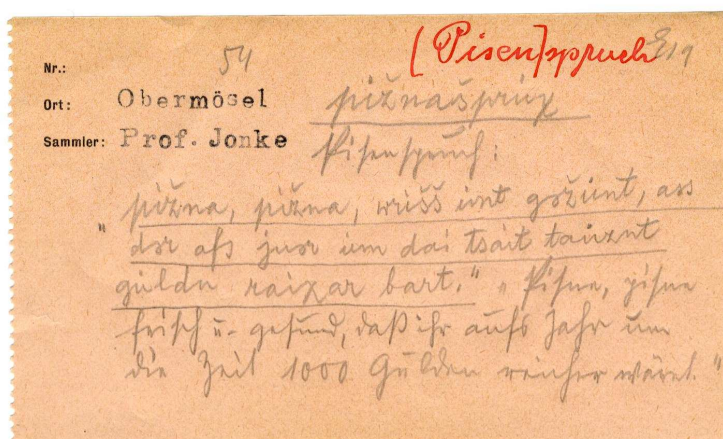 Nr.: 54 (Pisen)spruch E19
Ort: Obermösel pižnašprux
Sammler: Prof. Jonke Pisenspruch:
" pižna, pižna, wrišš unt gəžunt, ass
dər afs juər um dai tsait tauznt
guldn raixar bart." „Pisne, pisne
frisch u. gesund, daß ihr aufs Jahr um
die Zeit 1000 Gulden reicher wäret."